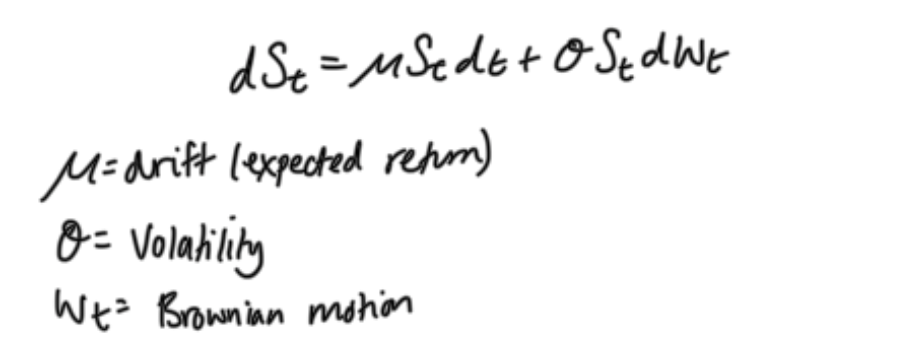 dSₜ = μSₜdt + σSₜdWₜ
μ = drift (expected return)
σ = Volatility
Wₜ = Brownian motion